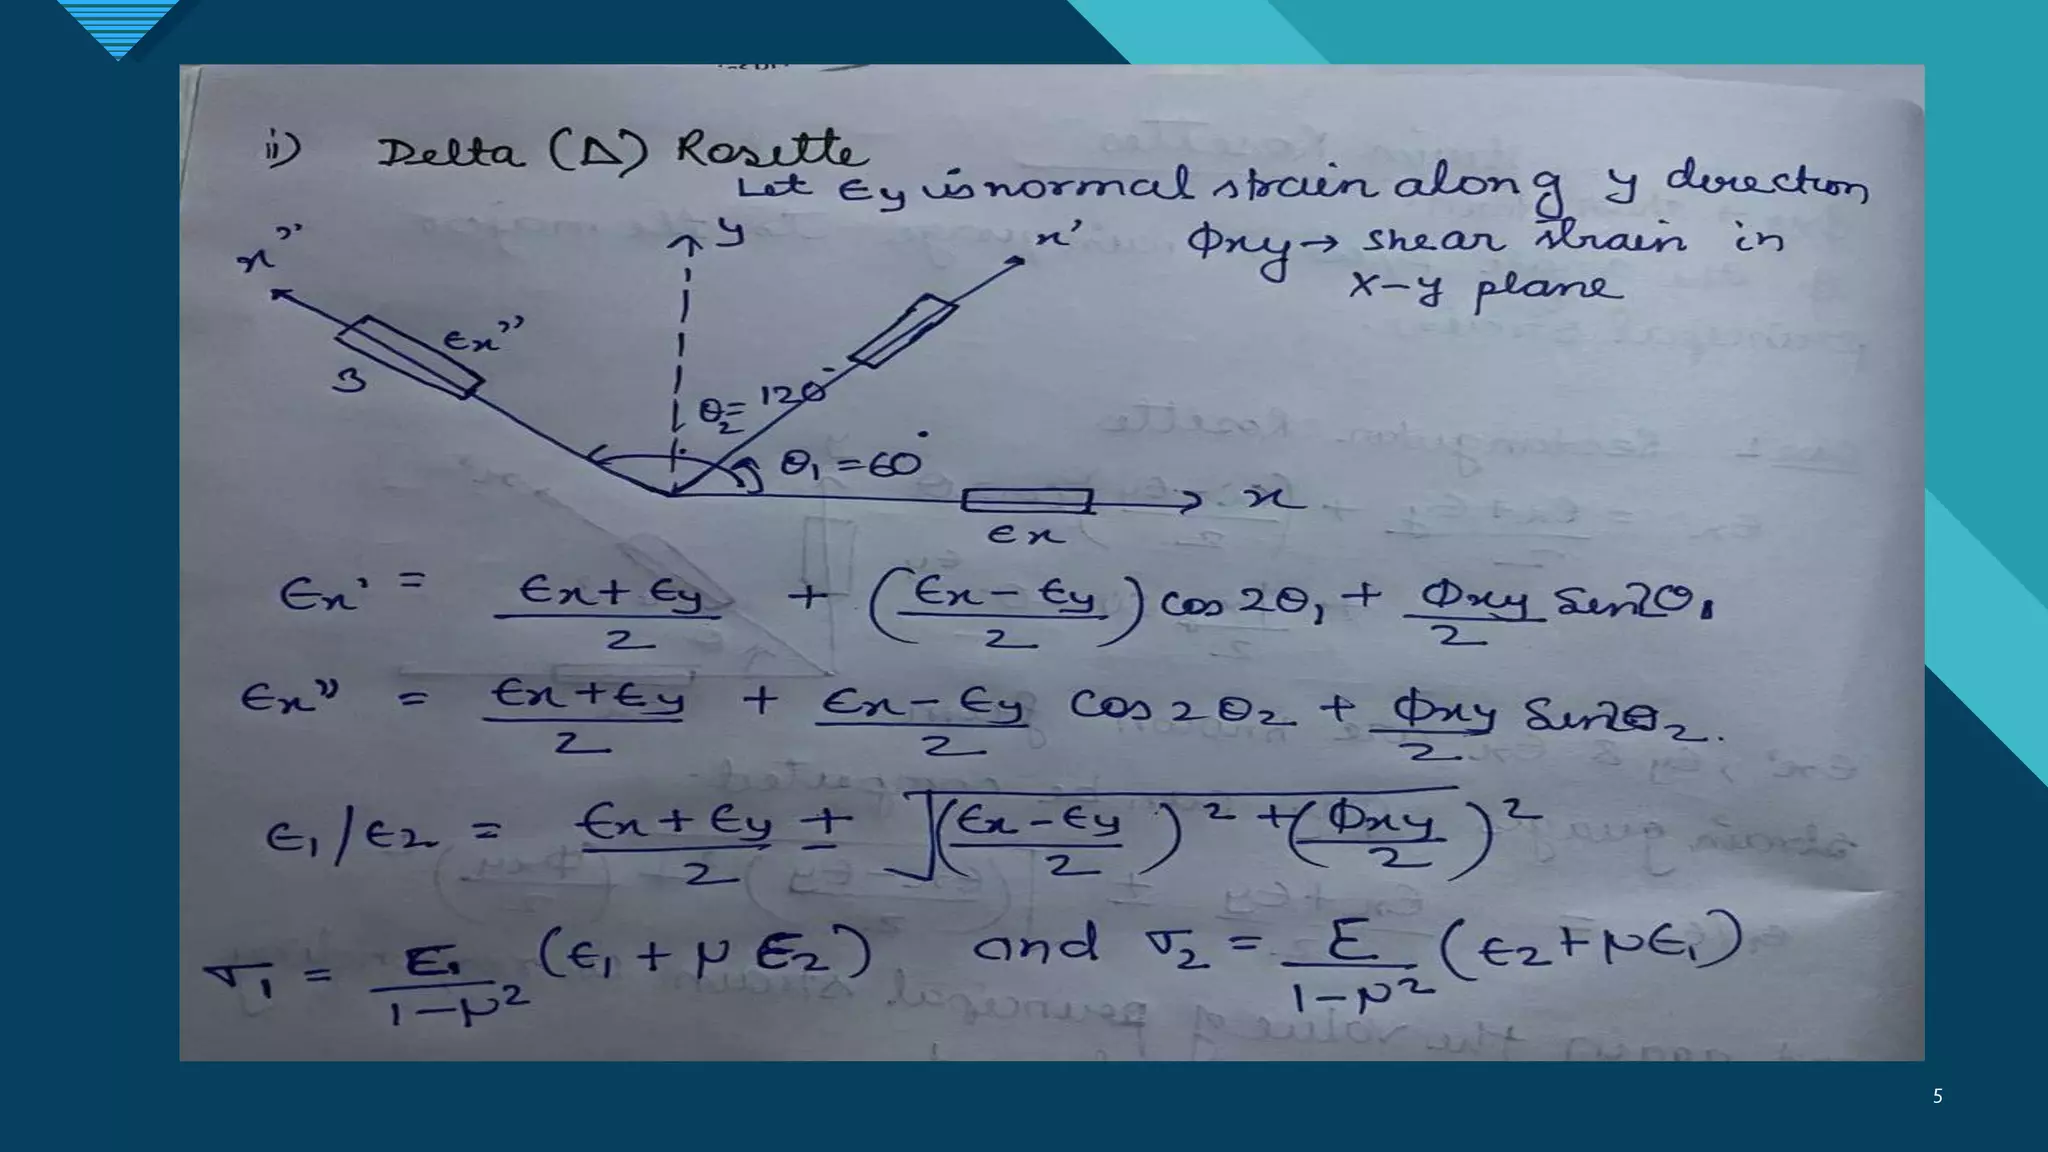 ii) Delta (Δ) Rosette
Let Ey is normal strain along y direction
Φxy → shear strain in
x-y plane
x''
y
x'
Ex''
3
θ2 = 120°
θ1 = 60°
x
Ex
Ex' = Ex + Ey / 2 + (Ex - Ey / 2) cos 2θ1 + Φxy / 2 Sin2θ1
Ex'' = Ex + Ey / 2 + Ex - Ey / 2 cos 2θ2 + Φxy / 2 Sin2θ2.
E1/E2 = Ex + Ey / 2 ± √(Ex - Ey / 2)² + (Φxy / 2)²
σ1 = E / 1-μ² (E1 + μ E2) and σ2 = E / 1-μ² (E2 + μE1)
5